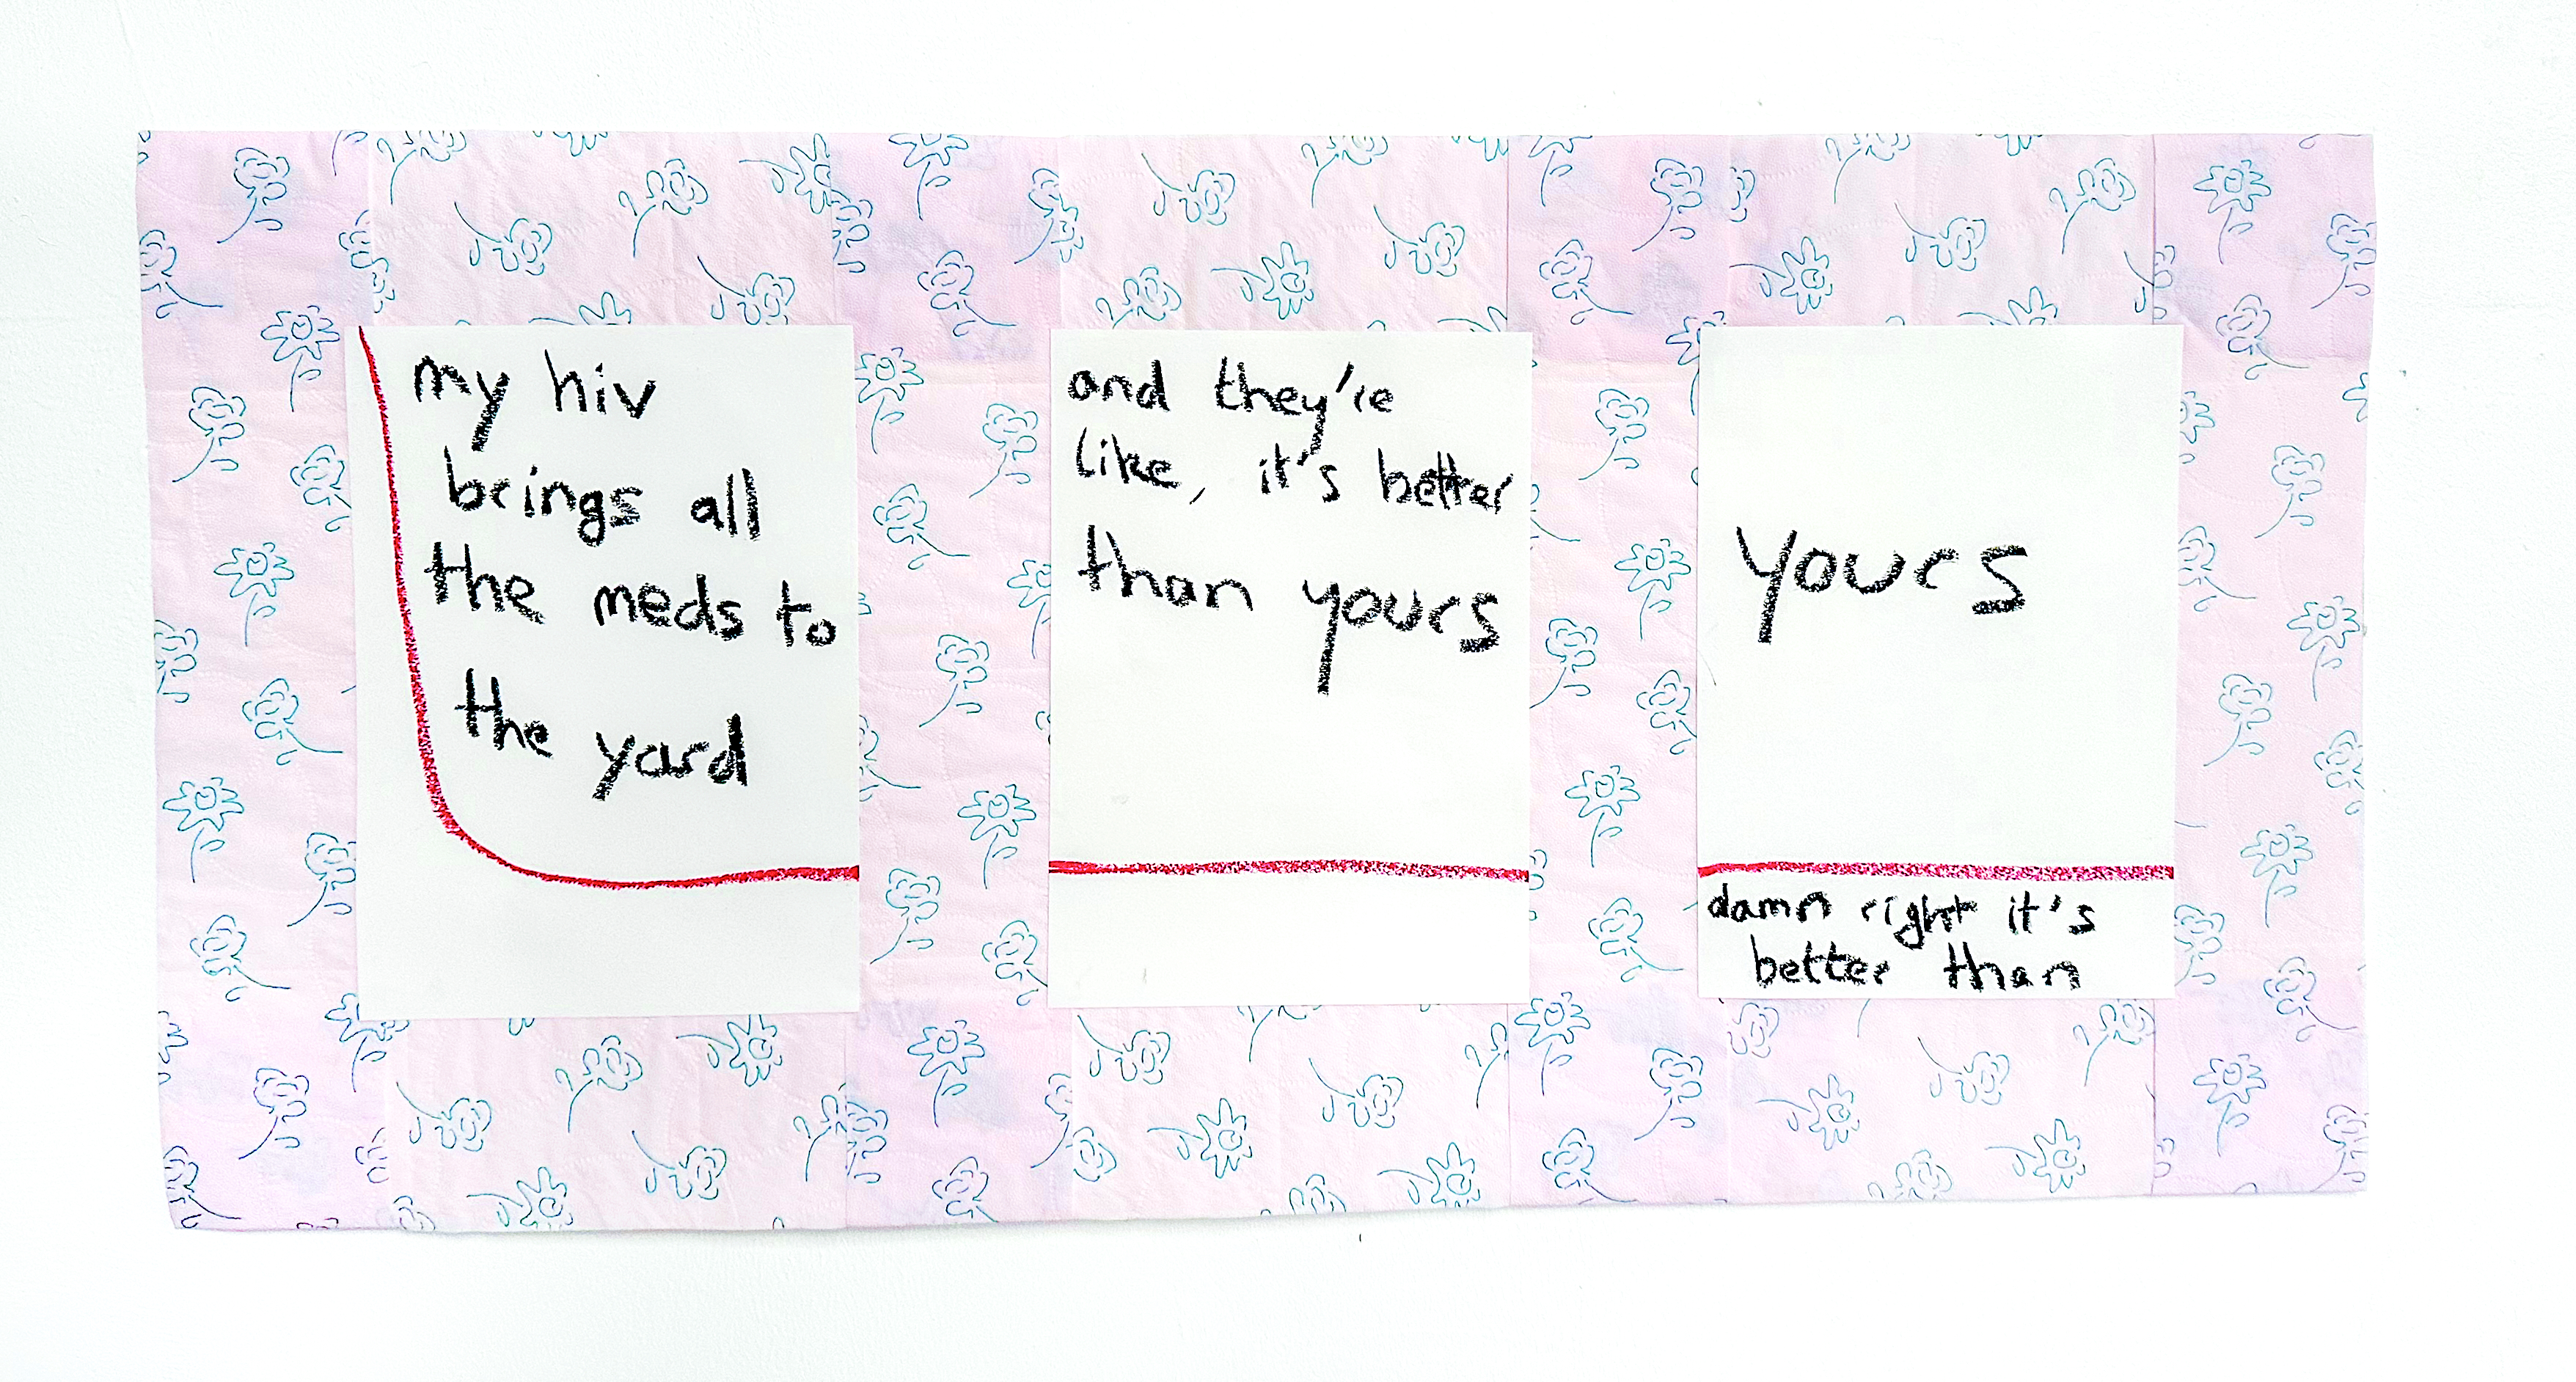 my hiv
brings all
the meds to
the yard
and they're
like, it's better
than yours
yours
damn right it's
better than